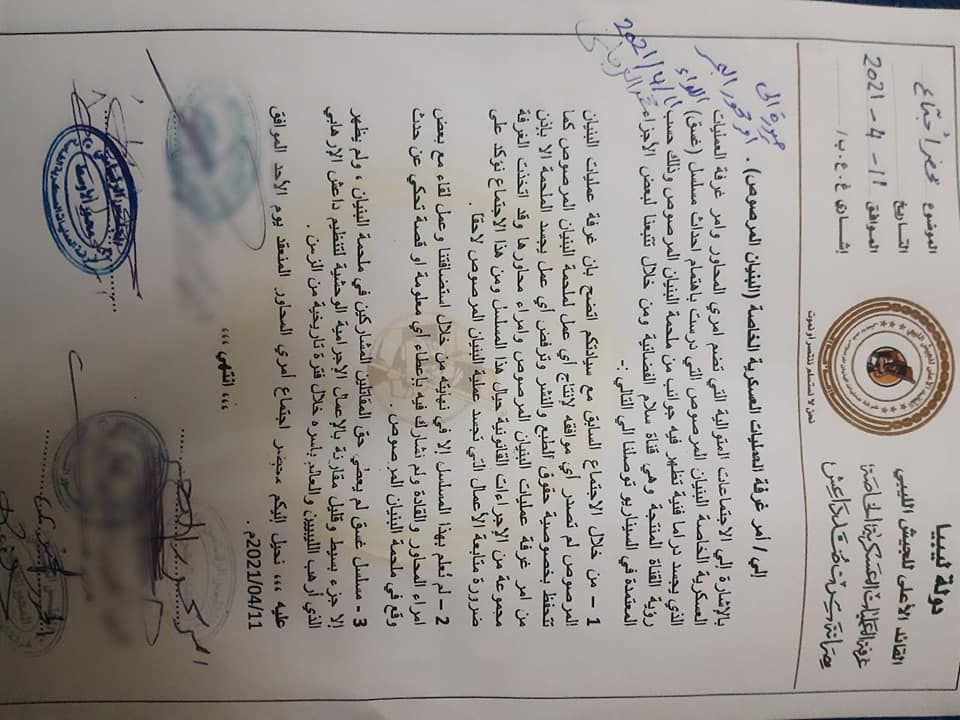 دولة ليبيا
القائد الأعلى للجيش الليبي
غرفة العمليات العسكرية الخاصة
مصراتة سرت ضد داعش
نحن لا نستسلم ننتصر أو نموت
الموضوع / محضر اجتماع
التاريخ
الموافق 11 - 4 - 2021
إشاري غ.ع.ب /
إلى / أمر غرفة العمليات العسكرية الخاصة (البنيان المرصوص) .
صورة الى
2021/4/11
بالإشارة إلي الاجتماعات المتوالية التي تضم امري المحاور وامر غرفة العمليات
العسكرية الخاصة البنيان المرصوص التي درست باهتمام احداث مسلسل (غسق)
الذي يجسد دراما فنية تظهر فيه جوانب من ملحمة البنيان المرصوص وذلك حسب
روية القناة المنتجة وهي قناة سلام الفضائية ومن خلال تتبعنا لبعض الأجزاء
المعتمدة في السيناريو توصلنا الي التالي :-
1 – من خلال الاجتماع السابق مع سيادتكم اتضح بان غرفة عمليات البنيان
المرصوص لم تصدر أي موافقه لإنتاج أي عمل لملحمة البنيان المرصوص كما
نتحفظ بخصوصية حقوق الطبع والنشر ونرفض أي عمل يجسد الملحمة الا بإذن
من امر غرفة عمليات البنيان المرصوص وامراء محاورها وقد اتخذت الغرفة
مجموعة من الإجراءات القانونية حيال هذا المسلسل ومن هذا الاجتماع نؤكد على
ضرورة متابعة الأعمال التي تجسد عملية البنيان المرصوص لاحقاً.
2 – لم نُعلم بهذا المسلسل إلا في نهايته من خلال استضافتنا وعمل لقاء مع بعض
امراء المحاور والقادة ولم نشارك فيه بإعطاء أي معلومة او قصة تحكي عن حدث
وقع في ملحمة البنيان المرصوص .
3 – مسلسل غسق لم يعطي حق المقاتلين المشاركين في ملحمة البنيان ، ولم يظهر
إلا جزء بسيط وقليل مقارنة بالإعمال الإجرامية الوحشية لتنظيم داعش الإرهابي
الذي أرهب الليبيون والعالم بأسره خلال فترة تاريخية من الزمن .
عليه ،،، نحيل إليكم محضر اجتماع أمري المحاور المنعقد يوم الأحد الموافق
2021/04/11م.
،،، انتهي ،،،